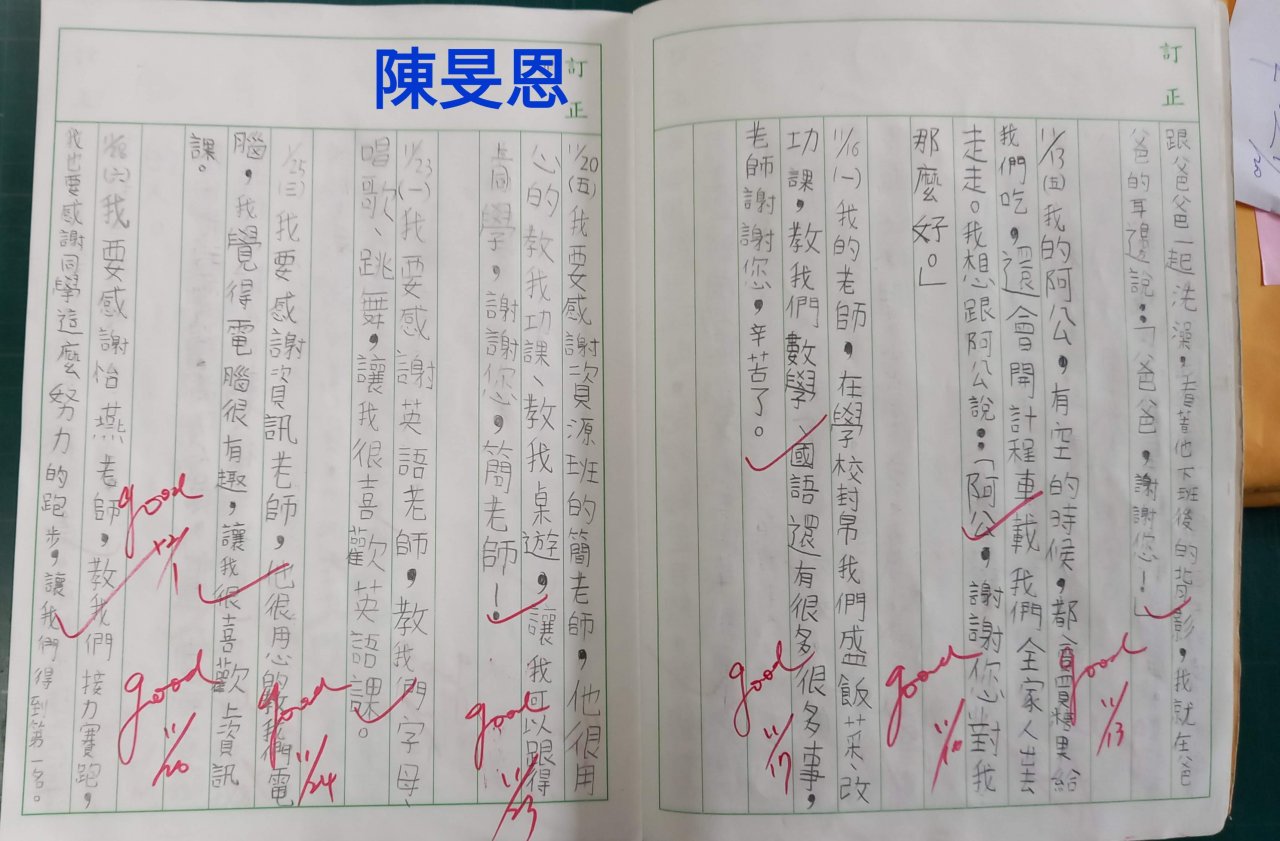 陳旻恩
訂正
跟爸爸爸一起洗澡，看著他下班後的背影，我就在爸
爸的耳邊說：「爸爸爸，謝謝您！」
good 11/13
11/13(五)我的阿公，有空的時候，都會買糖果給
我們吃，還會開計程車載我們全家人出去
走走。我想跟阿公說：「阿公，謝謝你心對我
那麼好。」
good
11/16(一)我的老師，在學校封帛我們盛飯菜、改
功課，教我們數學、國語還有很多很多事，
老師謝謝您，辛苦了。
good 11/17
訂正
11/20(五)我要感謝資源班的簡老師，他很用
心的教我功課、教我桌遊，讓我可以跟得
上同學，謝謝您，簡老師！
good 11/23
11/23(一)我要感謝英語老師，教我們字母、
唱歌、跳舞，讓我很喜歡英語課。
good 11/24
11/25(三)我要感謝資訊老師，他很用心的教我們電
腦，我覺得電腦很有趣，讓我很喜歡上資訊
課。
good 11/26
(六)我要感謝怡燕老師，教我們接力賽跑，
我也要感謝同學這麼努力的跑步，讓我們得到第一名。
good 12/1